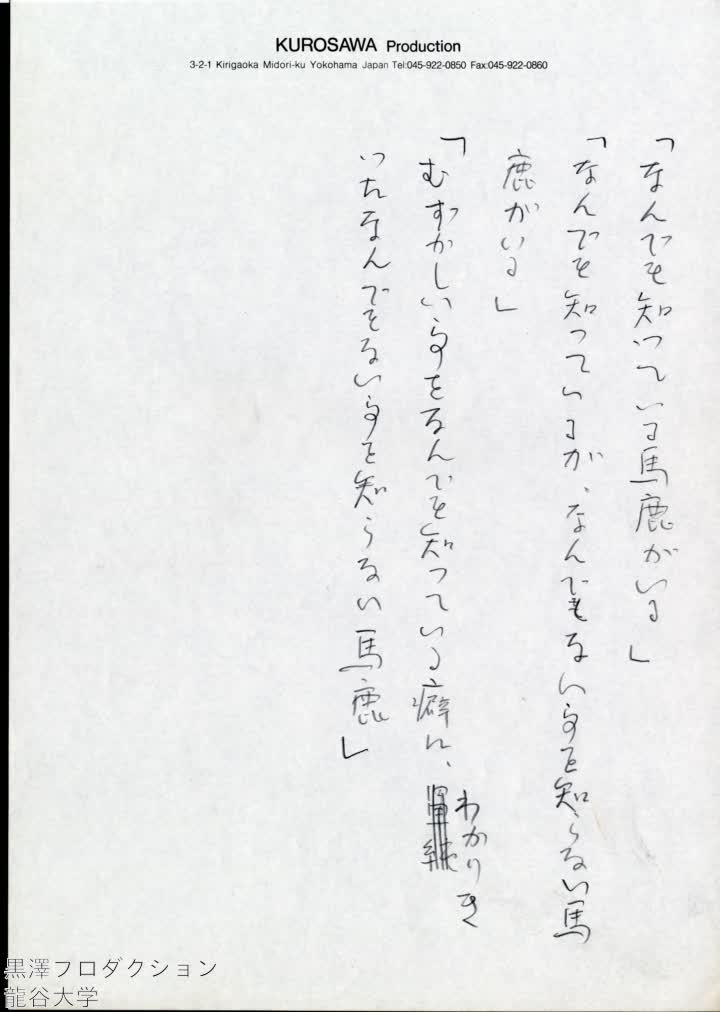 KUROSAWA Production
3-2-1 Kirigaoka Midori-ku Yokohama Japan Tel:045-922-0850 Fax:045-922-0860
「なんでも知っている馬鹿がいる」
「なんでも知っているが、なんでもない事を知らない馬
鹿がいる」
「むずかしい事をなんでも知っている癖に、わかりき
いたなんでもない事を知らない馬鹿」
黒澤プロダクション
龍谷大学